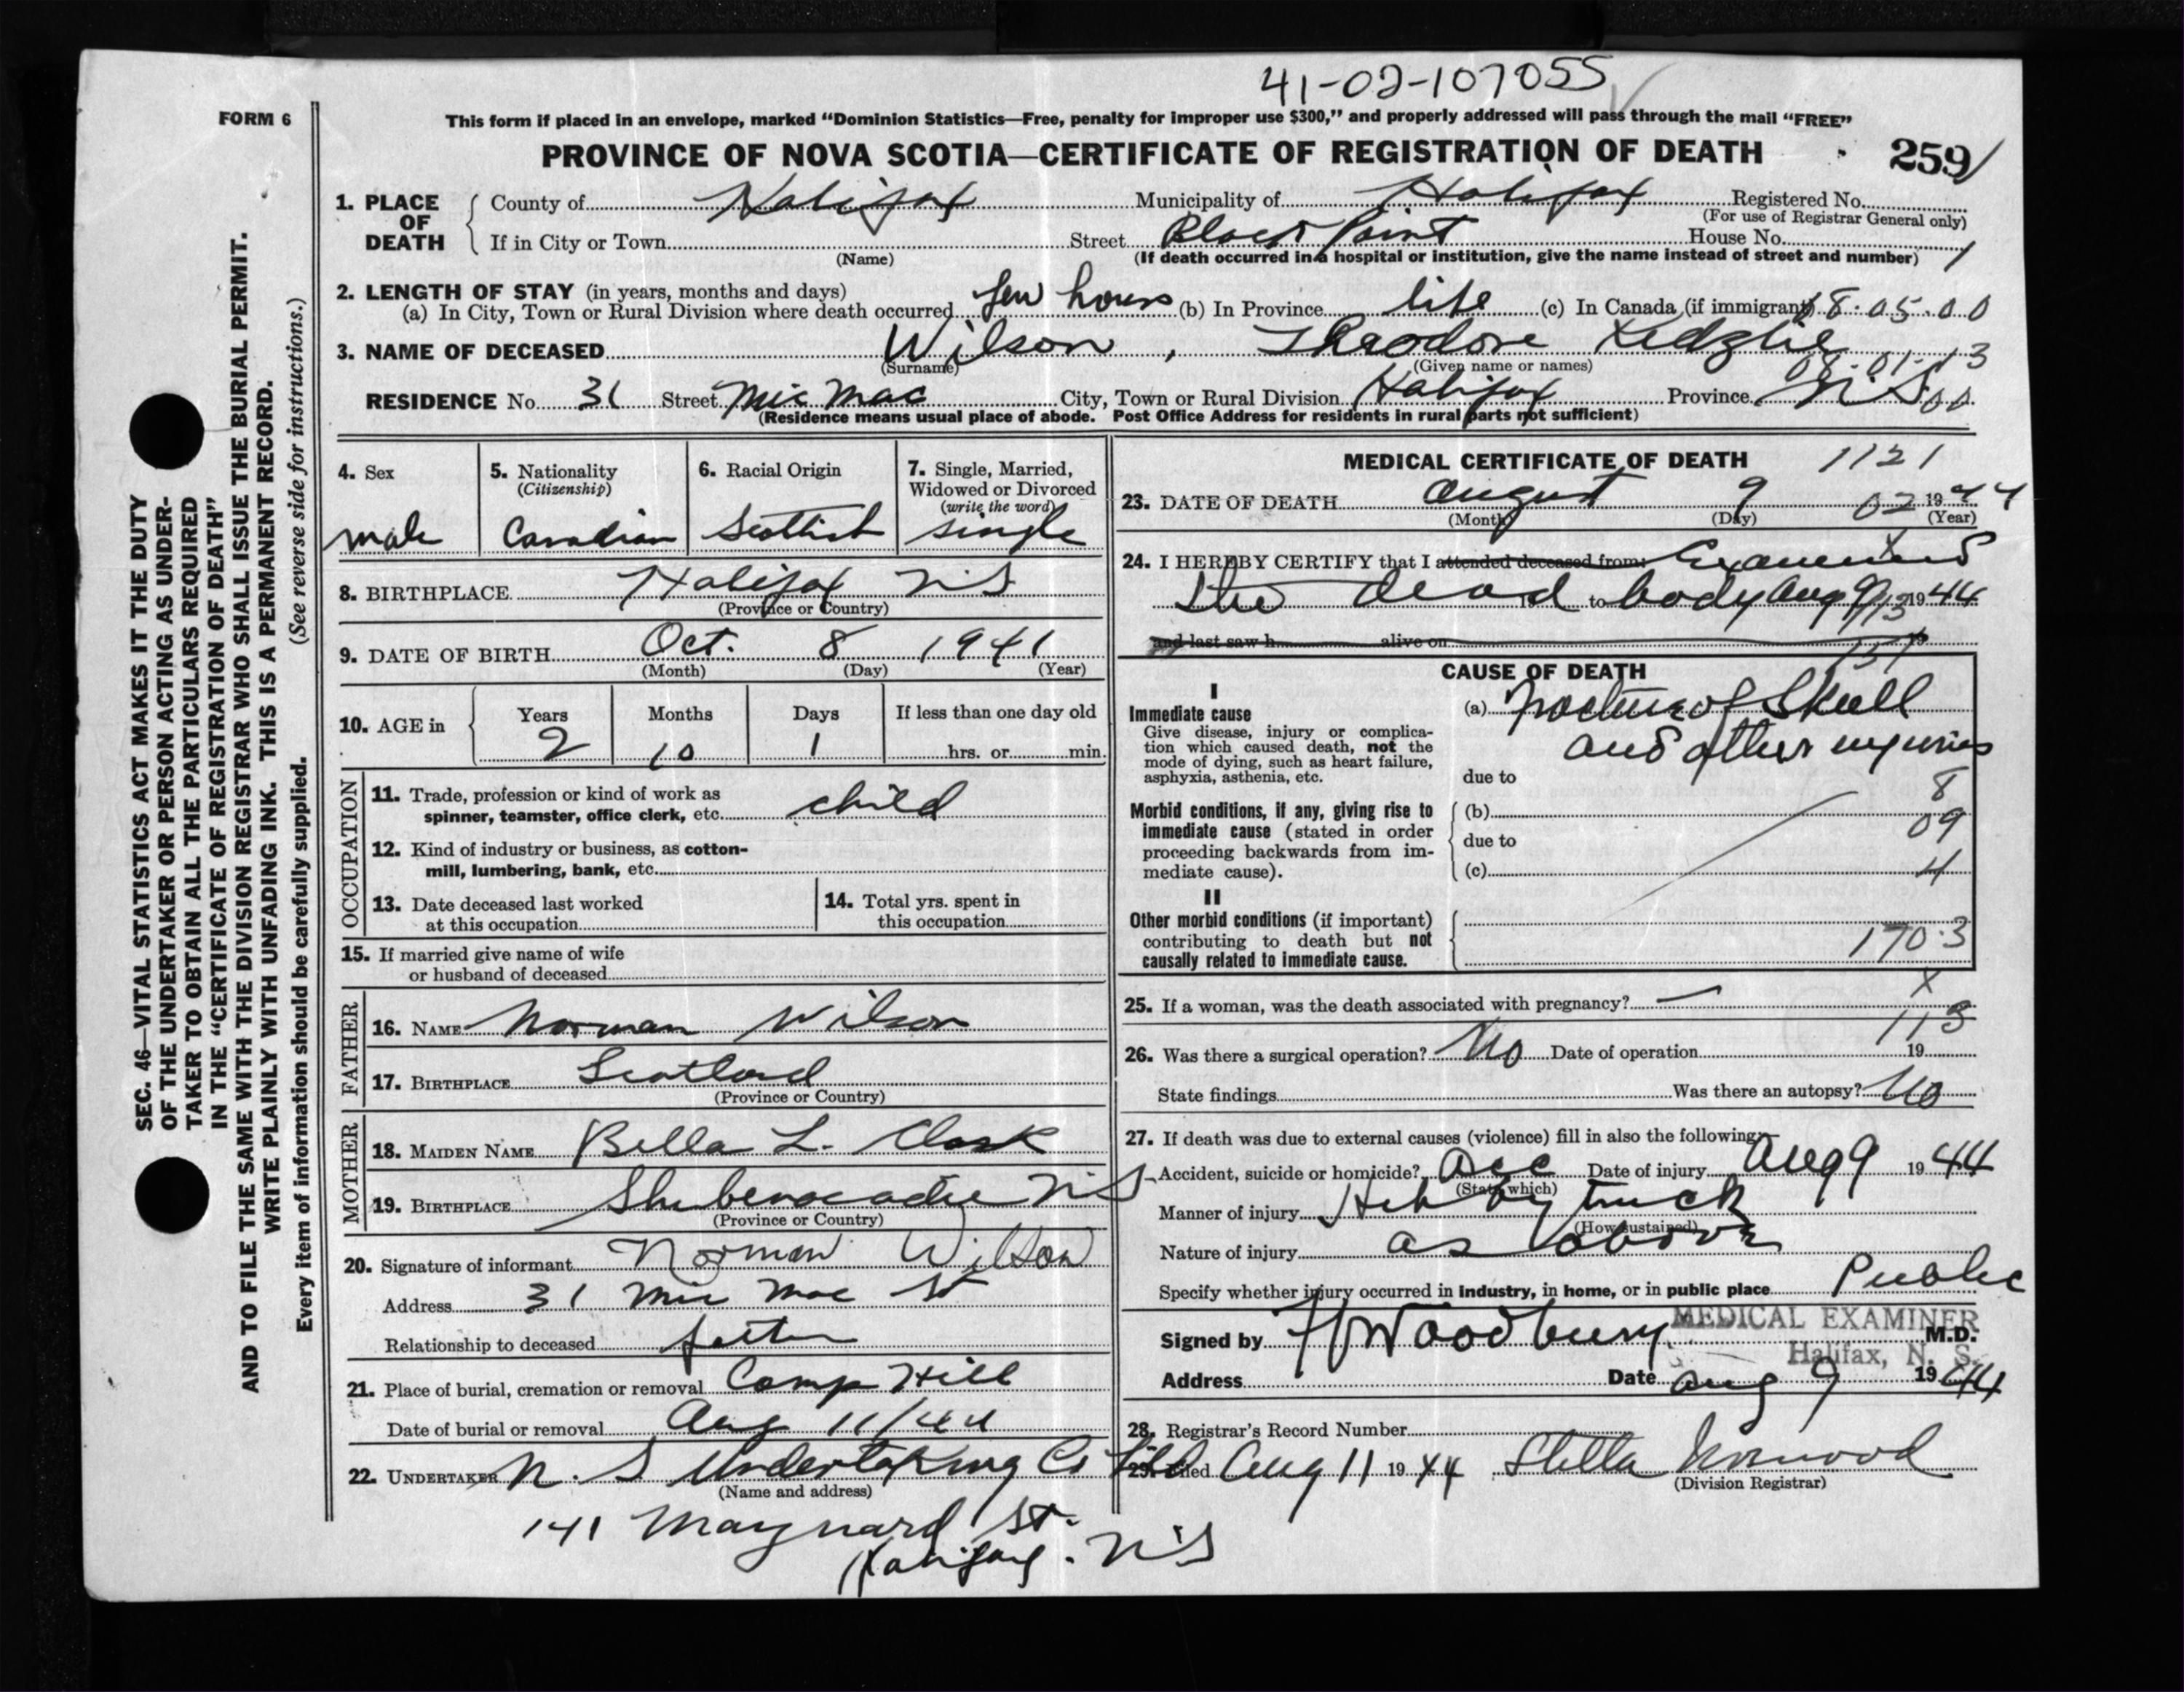 41-02-107055
FORM 6
This form if placed in an envelope, marked "Dominion Statistics—Free, penalty for improper use $300," and properly addressed will pass through the mail "FREE"
PROVINCE OF NOVA SCOTIA—CERTIFICATE OF REGISTRATION OF DEATH
259
1. PLACE OF DEATH
County of Halifax Municipality of Halifax Registered No.
(For use of Registrar General only)
If in City or Town Street Black Point House No.
(Name) (If death occurred in a hospital or institution, give the name instead of street and number) 1
2. LENGTH OF STAY (in years, months and days)
(a) In City, Town or Rural Division where death occurred few hours (b) In Province life (c) In Canada (if immigrant) 18.05.00
3. NAME OF DECEASED Wilson, Theodore Kedzlie
(Surname) (Given name or names) 08-01-13
RESIDENCE No. 31 Street Mic Mac City, Town or Rural Division Halifax Province N.S. 00
(Residence means usual place of abode. Post Office Address for residents in rural parts not sufficient)
4. Sex
male
5. Nationality
(Citizenship)
Canadian
6. Racial Origin
Scottish
7. Single, Married,
Widowed or Divorced
(write the word)
single
8. BIRTHPLACE Halifax N S
(Province or Country)
9. DATE OF BIRTH Oct. 8 1941
(Month) (Day) (Year)
10. AGE in
Years Months Days If less than one day old
2 10 1 hrs. or min.
OCCUPATION
11. Trade, profession or kind of work as
spinner, teamster, office clerk, etc. child
12. Kind of industry or business, as cotton-
mill, lumbering, bank, etc.
13. Date deceased last worked
at this occupation
14. Total yrs. spent in
this occupation
15. If married give name of wife
or husband of deceased
FATHER
16. NAME Norman Wilson
17. BIRTHPLACE Scotland
(Province or Country)
MOTHER
18. MAIDEN NAME Bella L. Clark
19. BIRTHPLACE Shubenacadie N S
(Province or Country)
20. Signature of informant Norman Wilson
Address 31 Mic Mac St
Relationship to deceased father
21. Place of burial, cremation or removal Camp Hill
Date of burial or removal Aug 11/44
22. UNDERTAKER N. S Undertaking Co Ltd
(Name and address)
141 Maynard St.
Halifax. N S
MEDICAL CERTIFICATE OF DEATH 1121
23. DATE OF DEATH August 9 02 1944
(Month) (Day) (Year)
24. I HEREBY CERTIFY that I attended deceased from: Examined
the dead to body Aug 9 1944
and last saw h alive on 19
CAUSE OF DEATH
I
Immediate cause
Give disease, injury or complica-
tion which caused death, not the
mode of dying, such as heart failure,
asphyxia, asthenia, etc.
(a) Fracture of Skull
and other injuries
due to 8
Morbid conditions, if any, giving rise to
immediate cause (stated in order
proceeding backwards from im-
mediate cause).
(b) 09
due to
(c) 4
II
Other morbid conditions (if important)
contributing to death but not
causally related to immediate cause.
170.3
25. If a woman, was the death associated with pregnancy? — X
113
26. Was there a surgical operation? No Date of operation 19
State findings Was there an autopsy? No
27. If death was due to external causes (violence) fill in also the following:
Accident, suicide or homicide? Acc Date of injury Aug 9 1944
(State which)
Manner of injury Hit by truck
(How sustained)
Nature of injury as above
Specify whether injury occurred in industry, in home, or in public place Public
MEDICAL EXAMINER
Signed by Woodbury M.D.
Halifax, N. S.
Address Date Aug 9 1944
28. Registrar's Record Number
29. Filed Aug 11 1944 Stella Norwood
(Division Registrar)
SEC. 46—VITAL STATISTICS ACT MAKES IT THE DUTY
OF THE UNDERTAKER OR PERSON ACTING AS UNDER-
TAKER TO OBTAIN ALL THE PARTICULARS REQUIRED
IN THE "CERTIFICATE OF REGISTRATION OF DEATH"
AND TO FILE THE SAME WITH THE DIVISION REGISTRAR WHO SHALL ISSUE THE BURIAL PERMIT.
WRITE PLAINLY WITH UNFADING INK. THIS IS A PERMANENT RECORD.
Every item of information should be carefully supplied. (See reverse side for instructions.)